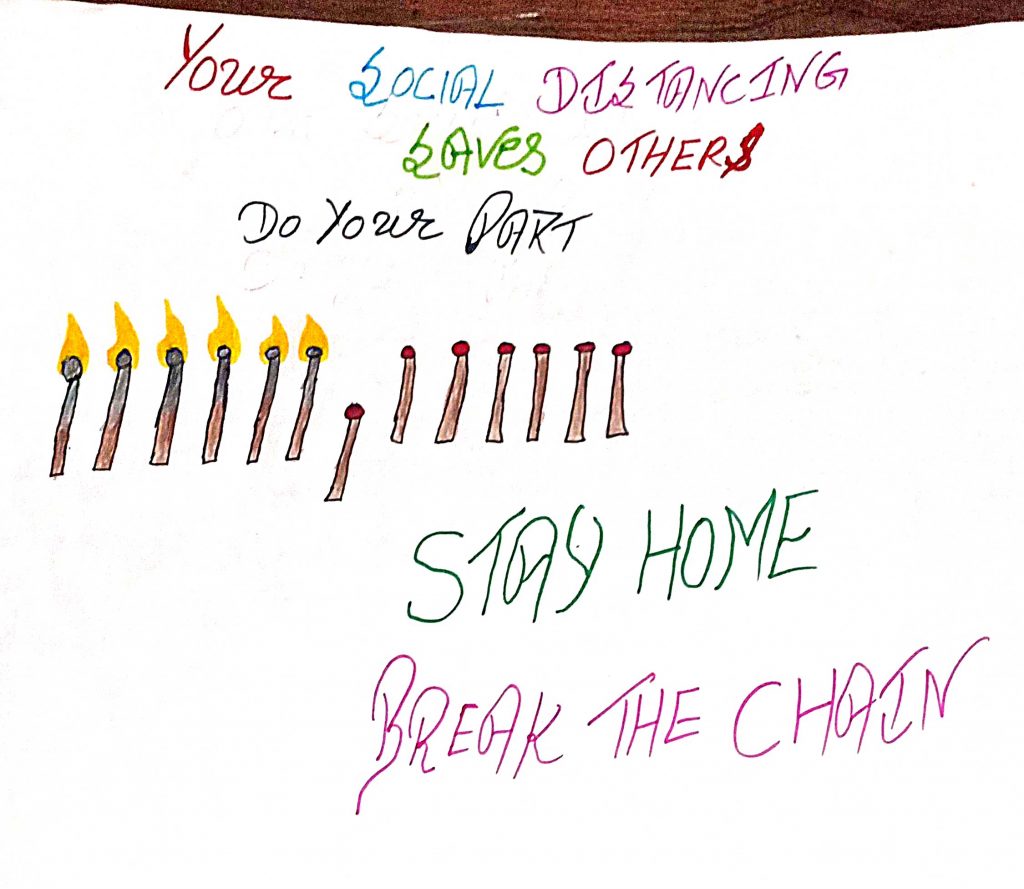 Your SOCIAL DISTANCING
SAVES OTHERS
Do Your PART
STAY HOME
BREAK THE CHAIN